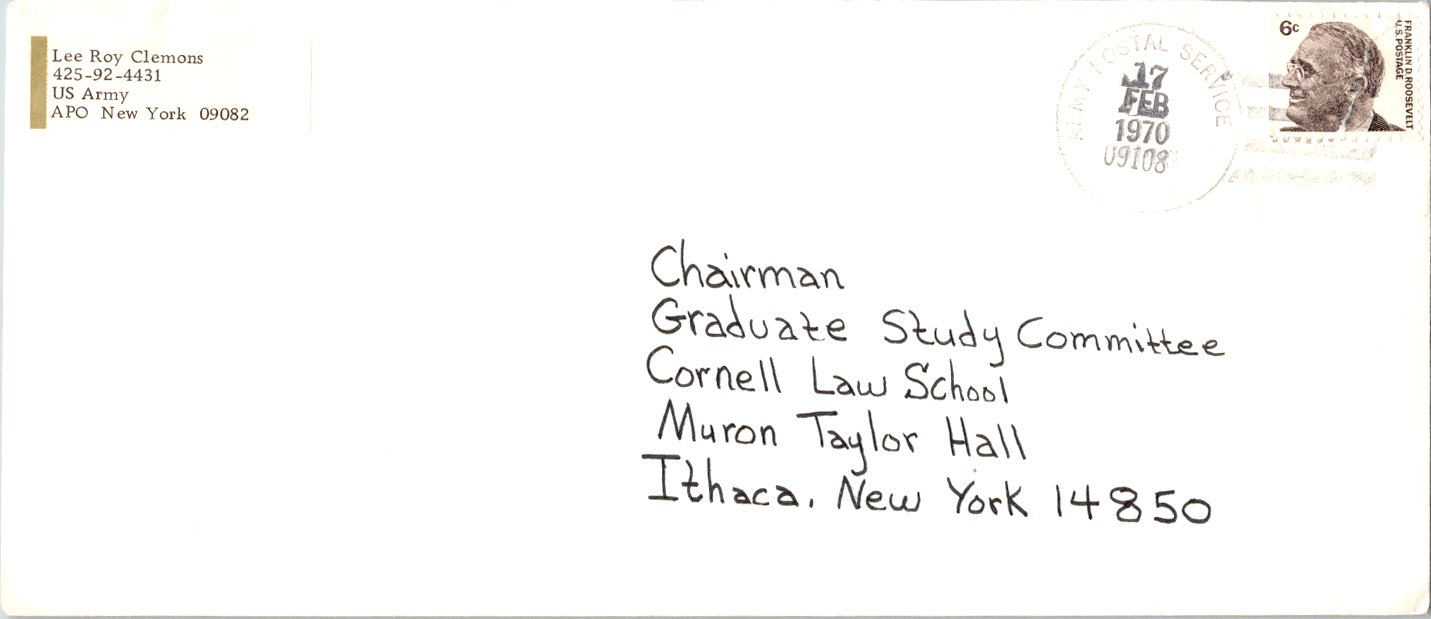 Lee Roy Clemons
425-92-4431
US Army
APO New York 09082
ARMY POSTAL SERVICE
17
FEB
1970
09108
6c
FRANKLIN D. ROOSEVELT
U.S. POSTAGE
Chairman
Graduate Study Committee
Cornell Law School
Muron Taylor Hall
Ithaca, New York 14850